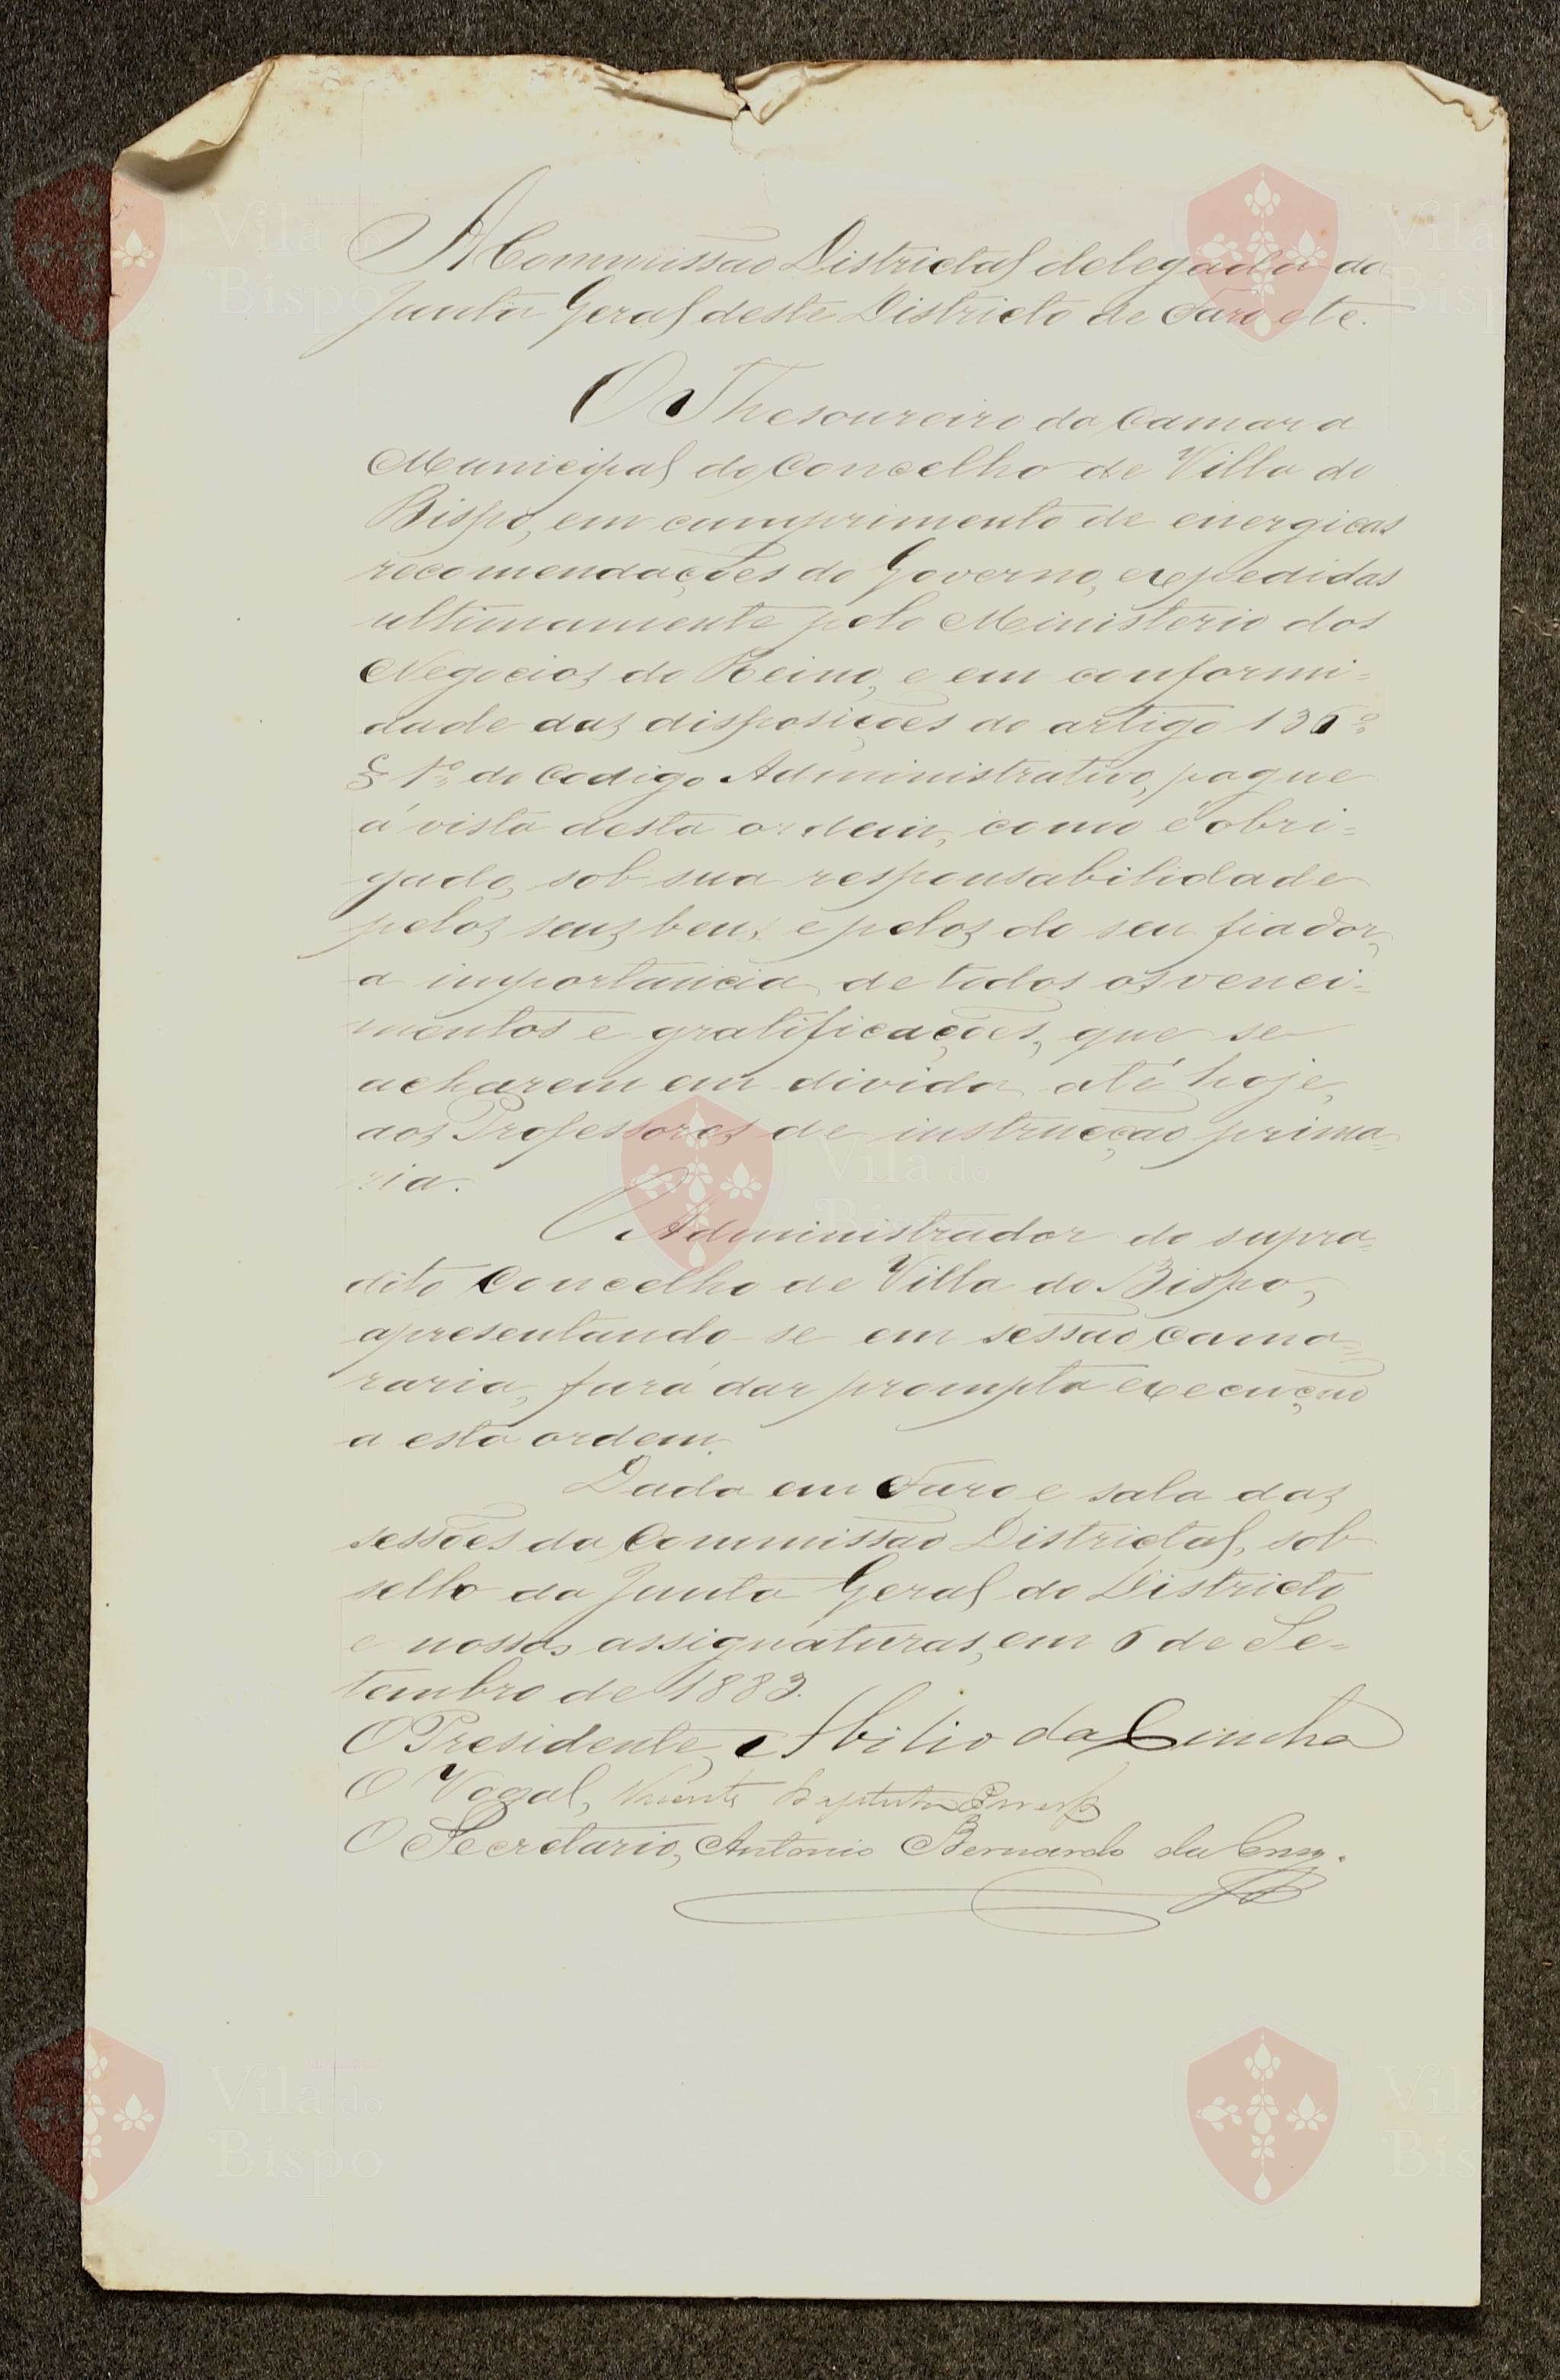 A Commissão Districtal delegada da
Junta Geral deste Districto de Faro etc.
O Thesoureiro da Camara
Municipal do Concelho de Villa do
Bispo, em cumprimento de energicas
recomendações do Governo, expedidas
ultimamente pelo Ministerio dos
Negocios do Reino, e em conformi=
dade das disposições do artigo 136º
§ 1º do Codigo Administrativo, pague
á vista desta ordem, como é obri=
gado, sob sua responsabilidade
pelos seus bens e pelos do seu fiador,
a importancia de todos os venci=
mentos e gratificações, que se
acharem em divida até hoje,
aos Professores de instrucção prima=
ria.
O Administrador do supra=
dito Concelho de Villa do Bispo,
apresentando-se em sessão cama=
raria, fará dar prompta execução
a esta ordem.
Dada em Faro e sala das
sessões da Commissão Districtal, sob
sello da Junta Geral do Districto
e nossas assignaturas, em 6 de Se=
tembro de 1883.
O Presidente, Abilio da Cunha
O Vogal, Vicente Baptista
O Secretario, Antonio Bernardo da Cruz.
Vila do
Bispo
Vila
Bispo
Vila do
Bispo
Vila do
Bispo
Vil
Bis